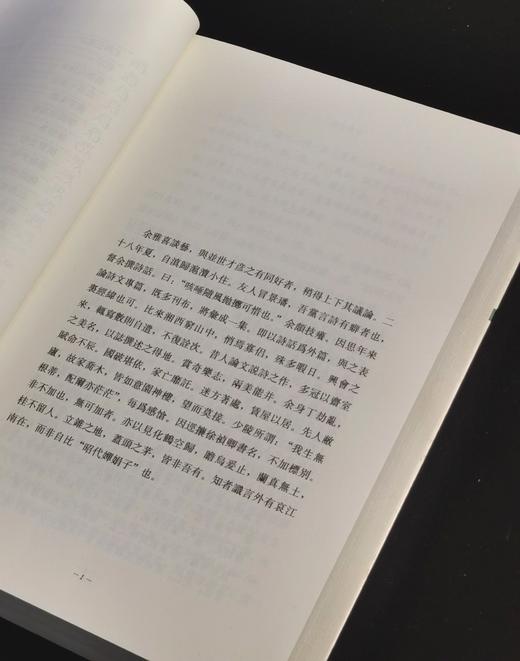 余雅喜談藝，與並世才彥之有同好者，稍得上下其議論。二
十八年夏，自滇歸滬瀆小住。友人冒景璠，吾黨言詩有癖者也，
督余撰詩話。曰：“咳唾隨風拋擲可惜也。”余頗技癢。因思年來
論詩文專篇，既多刊布，將彙成一集。即以詩話爲外篇，與之表
裏經緯也可。比來湘西窮山中，悄焉寡侶，殊多暇日。興會之
來，輒寫數則自遣，不復詮次。昔人論文說詩之作，多冠以齋室
之美名，以誌撰述之得地。賞奇樂志，兩美能并。余身丁劫亂，
賦命不辰。國破堪依，家亡靡託。迷方著處，賃屋以居。先人敝
廬，故家喬木，皆如意園神樓，望而莫接。少陵所謂：“我生無
根蒂，配爾亦茫茫”，每爲感愴。因逕攘徐禎卿書名，不加標別。
非不加也，無可加者。亦以見化鶴空歸，瞻烏爰止，蘭真無土，
桂不留人。立錐之地，蓋頭之茅，皆非吾有。知者識言外有哀江
南在，而非自比“昭代嬋娟子”也。
—1—